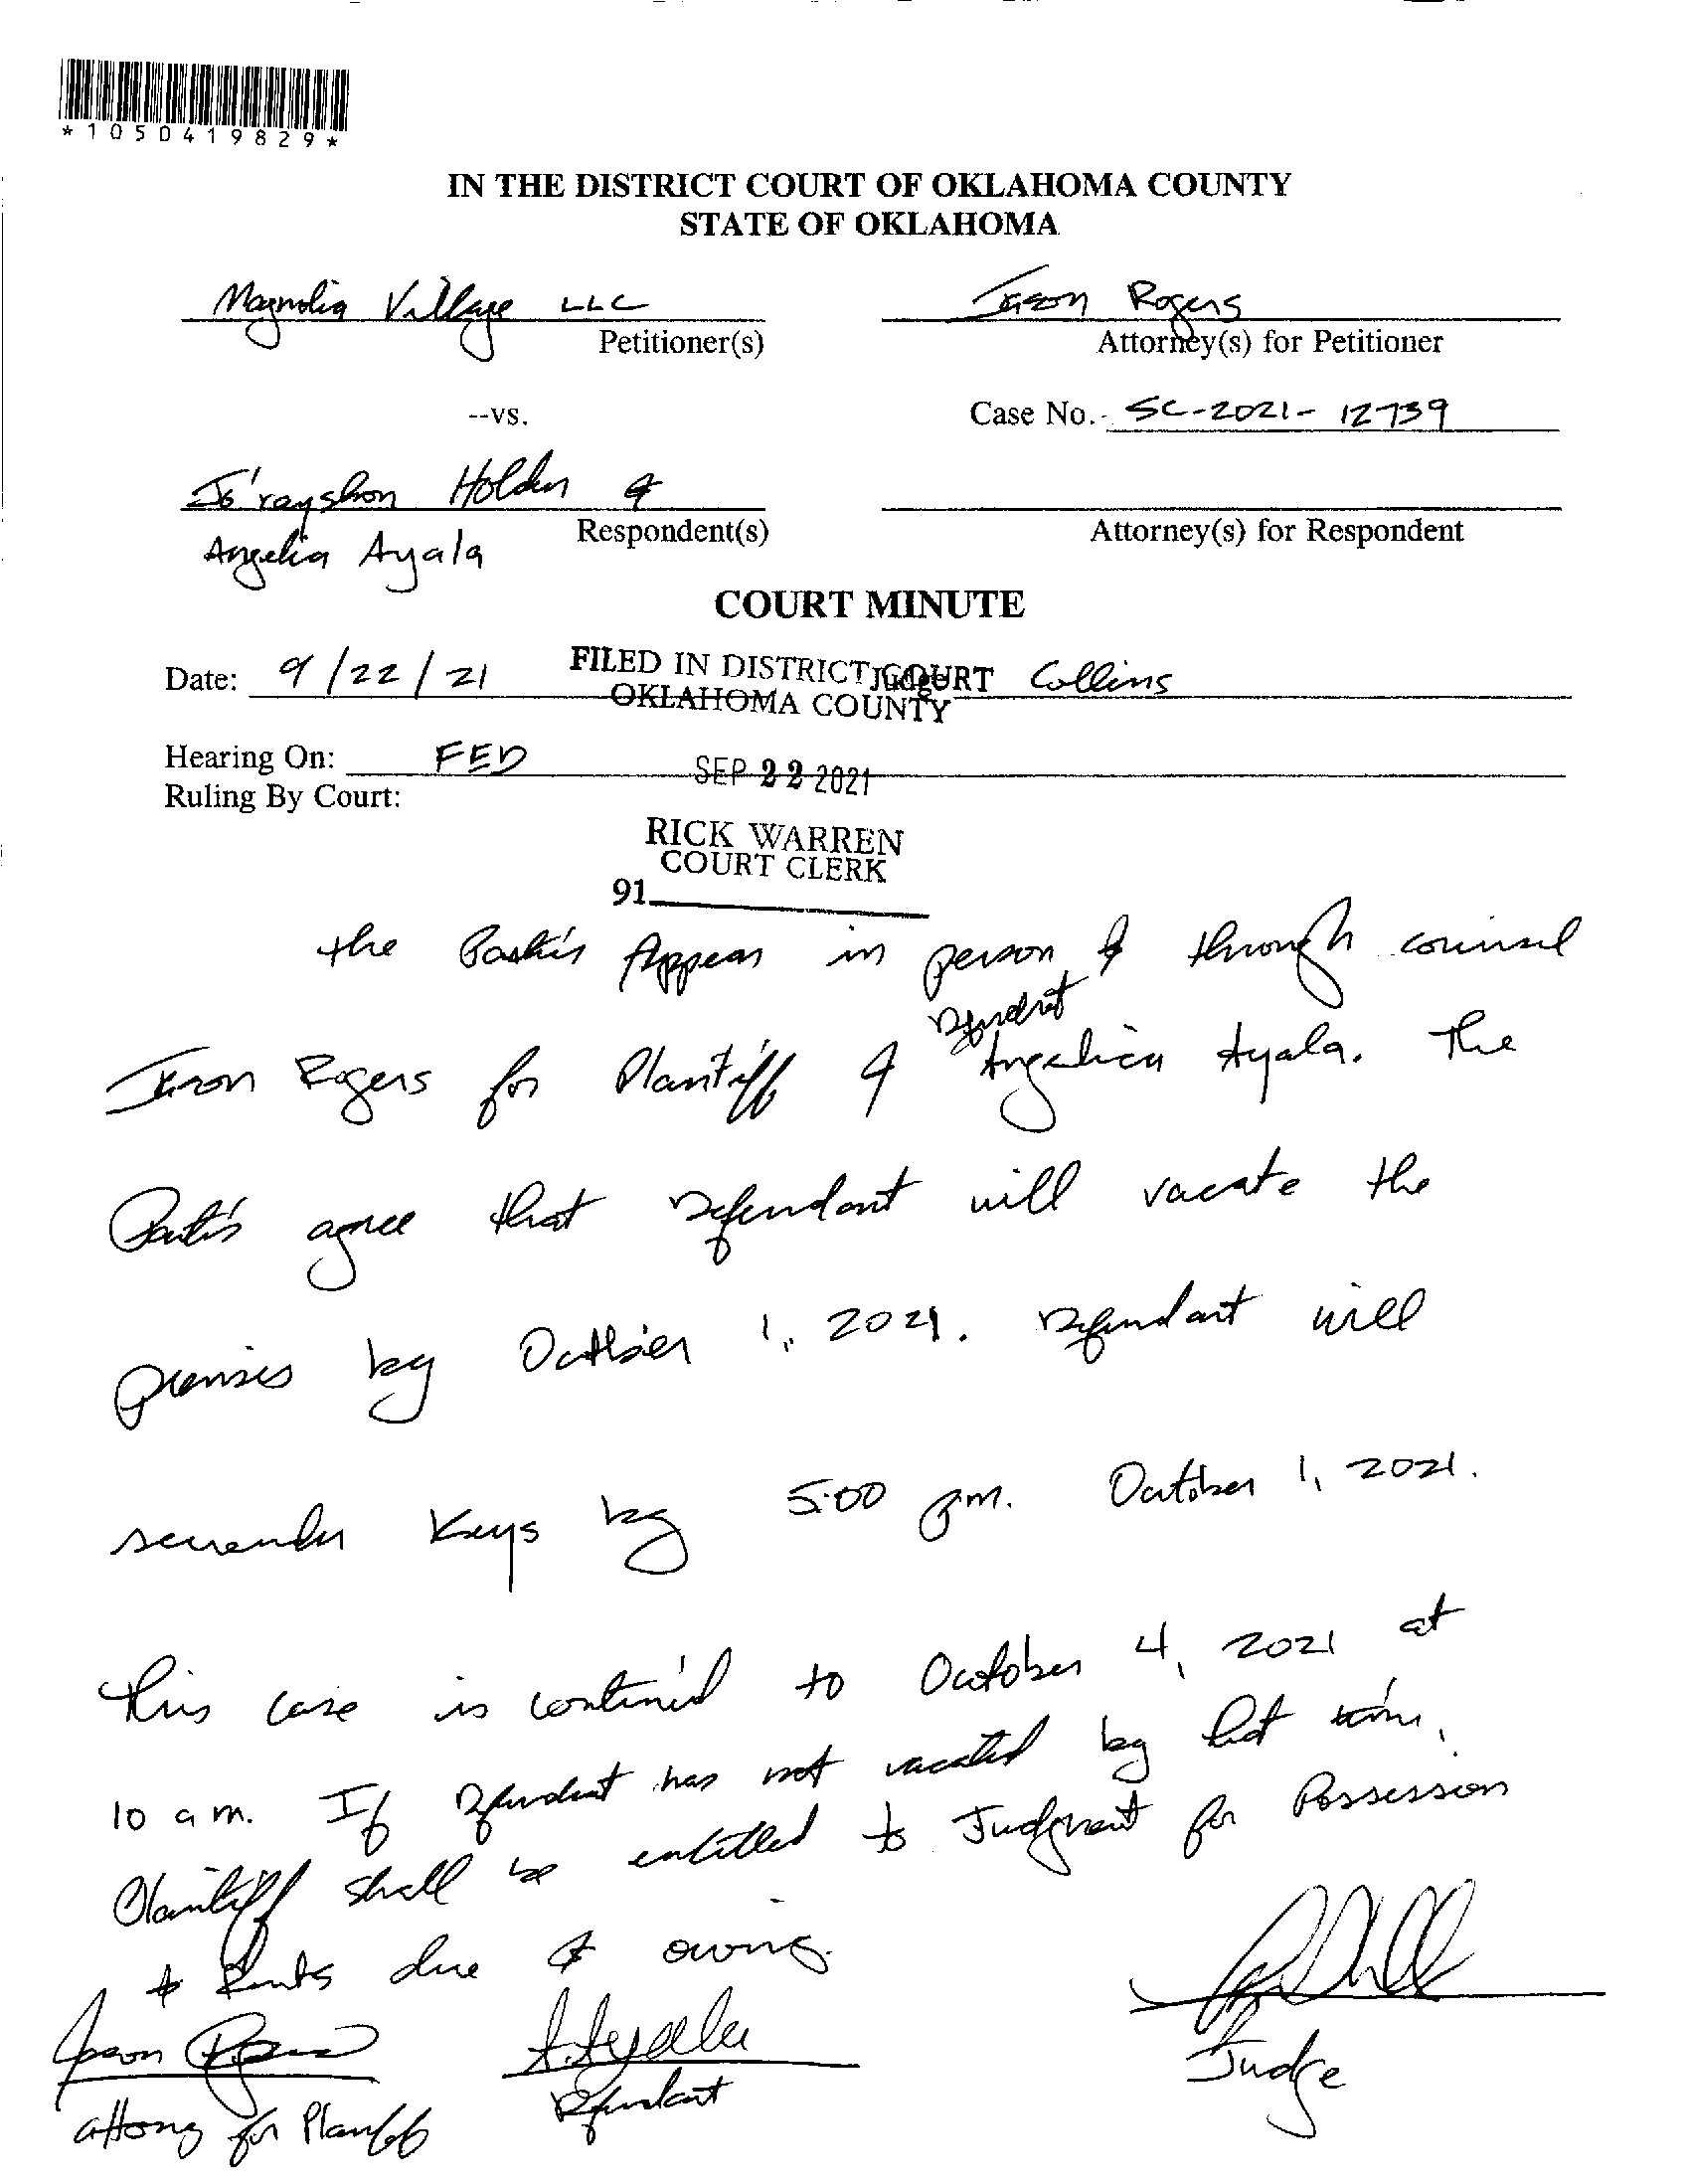 *1050419829*
IN THE DISTRICT COURT OF OKLAHOMA COUNTY
STATE OF OKLAHOMA
Magnolia Village LLC
Petitioner(s)
Jason Rogers
Attorney(s) for Petitioner
--vs.
Case No. SC-2021-12739
Jo'rayshon Holden &
Respondent(s)
Angelia Ayala
Attorney(s) for Respondent
COURT MINUTE
Date: 9/22/21
Judge Collins
FILED IN DISTRICT COURT
OKLAHOMA COUNTY
Hearing On: FED
SEP 22 2021
Ruling By Court:
RICK WARREN
COURT CLERK
91
the Parties Appear in person & through counsel
Defendant
Jason Rogers for Plantiff & Angelica Ayala. The
Parties agree that Defendant will vacate the
premises by October 1, 2021. Defendant will
surrender Keys by 5:00 p.m. October 1, 2021.
This case is continued to October 4, 2021 at
10 a m. If Defendant has not vacated by that time,
Plaintiff shall be entitled to Judgment for Possession
& Rents due & owing.
Jason Rogers
A. Ayala
attorney for Plaintiff
Defendant
Judge